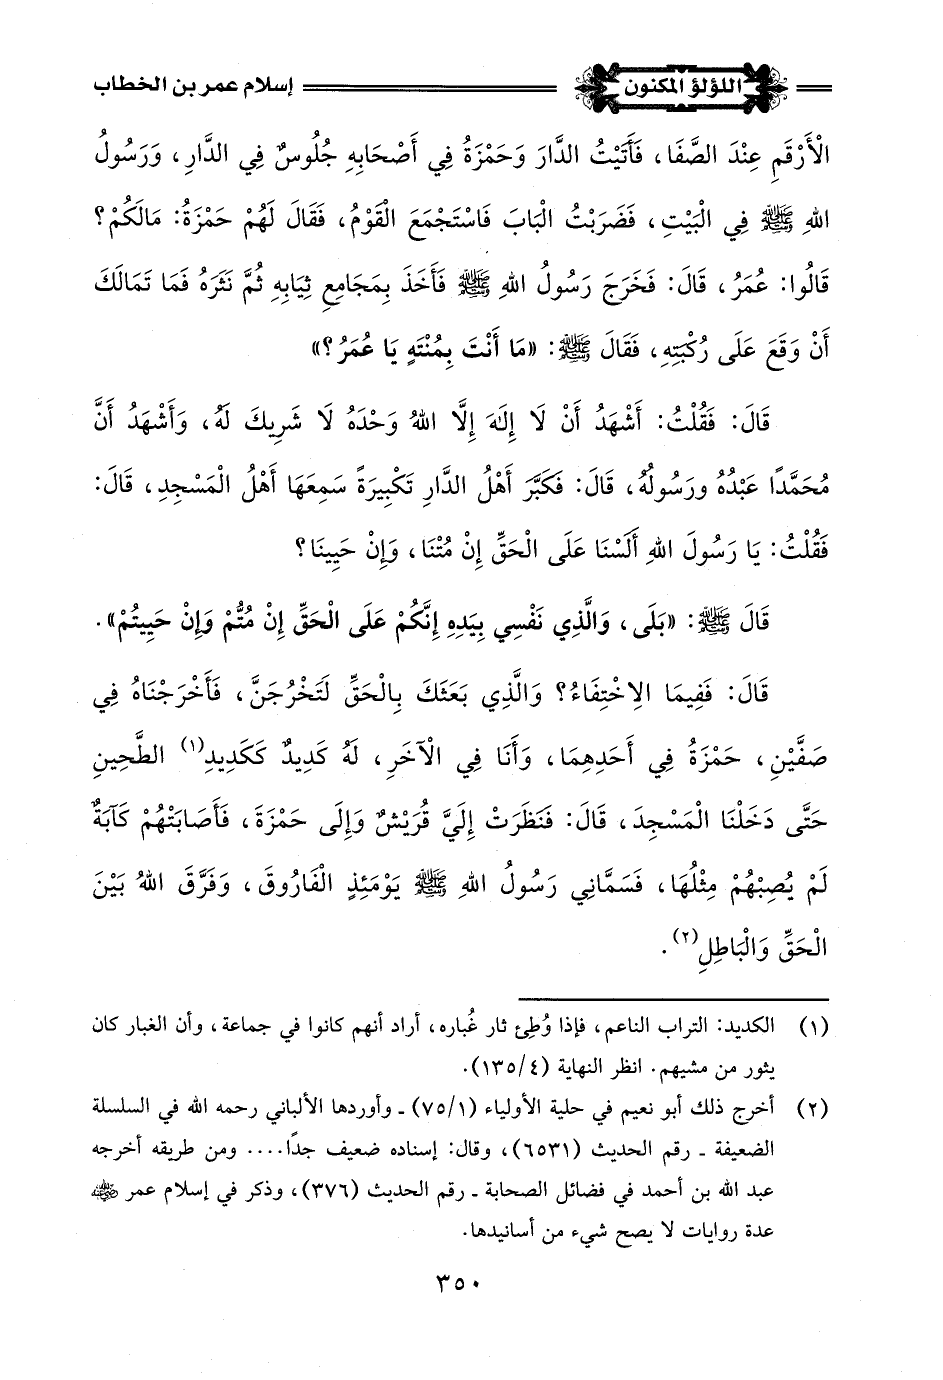 اللؤلؤ المكنون إسلام عمر بن الخطاب
الْأَرْقَمِ عِنْدَ الصَّفَا، فَأَتَيْتُ الدَّارَ وَحَمْزَةُ فِي أَصْحَابِهِ جُلُوسٌ فِي الدَّارِ، وَرَسُولُ
اللهِ ﷺ فِي الْبَيْتِ، فَضَرَبْتُ الْبَابَ فَاسْتَجْمَعَ الْقَوْمُ، فَقَالَ لَهُمْ حَمْزَةُ: مَالَكُمْ؟
قَالُوا: عُمَرُ، قَالَ: فَخَرَجَ رَسُولُ اللهِ ﷺ فَأَخَذَ بِمَجَامِعِ ثِيَابِهِ ثُمَّ نَثَرَهُ فَمَا تَمَالَكَ
أَنْ وَقَعَ عَلَى رُكْبَتِهِ، فَقَالَ ﷺ: «مَا أَنْتَ بِمُنْتَهٍ يَا عُمَرُ؟»
قَالَ: فَقُلْتُ: أَشْهَدُ أَنْ لَا إِلَهَ إِلَّا اللهُ وَحْدَهُ لَا شَرِيكَ لَهُ، وَأَشْهَدُ أَنَّ
مُحَمَّدًا عَبْدُهُ ورَسُولُهُ، قَالَ: فَكَبَّرَ أَهْلُ الدَّارِ تَكْبِيرَةً سَمِعَهَا أَهْلُ الْمَسْجِدِ، قَالَ:
فَقُلْتُ: يَا رَسُولَ اللهِ أَلَسْنَا عَلَى الْحَقِّ إِنْ مُتْنَا، وَإِنْ حَيِينَا؟
قَالَ ﷺ: «بَلَى، وَالَّذِي نَفْسِي بِيَدِهِ إِنَّكُمْ عَلَى الْحَقِّ إِنْ مُتُّمْ وَإِنْ حَيِيتُمْ».
قَالَ: فَفِيمَا الِاخْتِفَاءُ؟ وَالَّذِي بَعَثَكَ بِالْحَقِّ لَتَخْرُجَنَّ، فَأَخْرَجْنَاهُ فِي
صَفَّيْنِ، حَمْزَةُ فِي أَحَدِهِمَا، وَأَنَا فِي الْآخَرِ، لَهُ كَدِيدٌ كَكَدِيدِ(١) الطَّحِينِ
حَتَّى دَخَلْنَا الْمَسْجِدَ، قَالَ: فَنَظَرَتْ إِلَيَّ قُرَيْشٌ وَإِلَى حَمْزَةَ، فَأَصَابَتْهُمْ كَآبَةٌ
لَمْ يُصِبْهُمْ مِثْلُهَا، فَسَمَّانِي رَسُولُ اللهِ ﷺ يَوْمَئِذٍ الْفَارُوقَ، وَفَرَّقَ اللهُ بَيْنَ
الْحَقِّ وَالْبَاطِلِ(٢).
(١) الكديد: التراب الناعم، فإذا وُطِئ ثار غُباره، أراد أنهم كانوا في جماعة، وأن الغبار كان
يثور من مشيهم. انظر النهاية (١٣٥/٤).
(٢) أخرج ذلك أبو نعيم في حلية الأولياء (٧٥/١) ـ وأوردها الألباني رحمه الله في السلسلة
الضعيفة ـ رقم الحديث (٦٥٣١)، وقال: إسناده ضعيف جدًا.... ومن طريقه أخرجه
عبد الله بن أحمد في فضائل الصحابة ـ رقم الحديث (٣٧٦)، وذكر في إسلام عمر رضي الله عنه
عدة روايات لا يصح شيء من أسانيدها.
٣٥٠